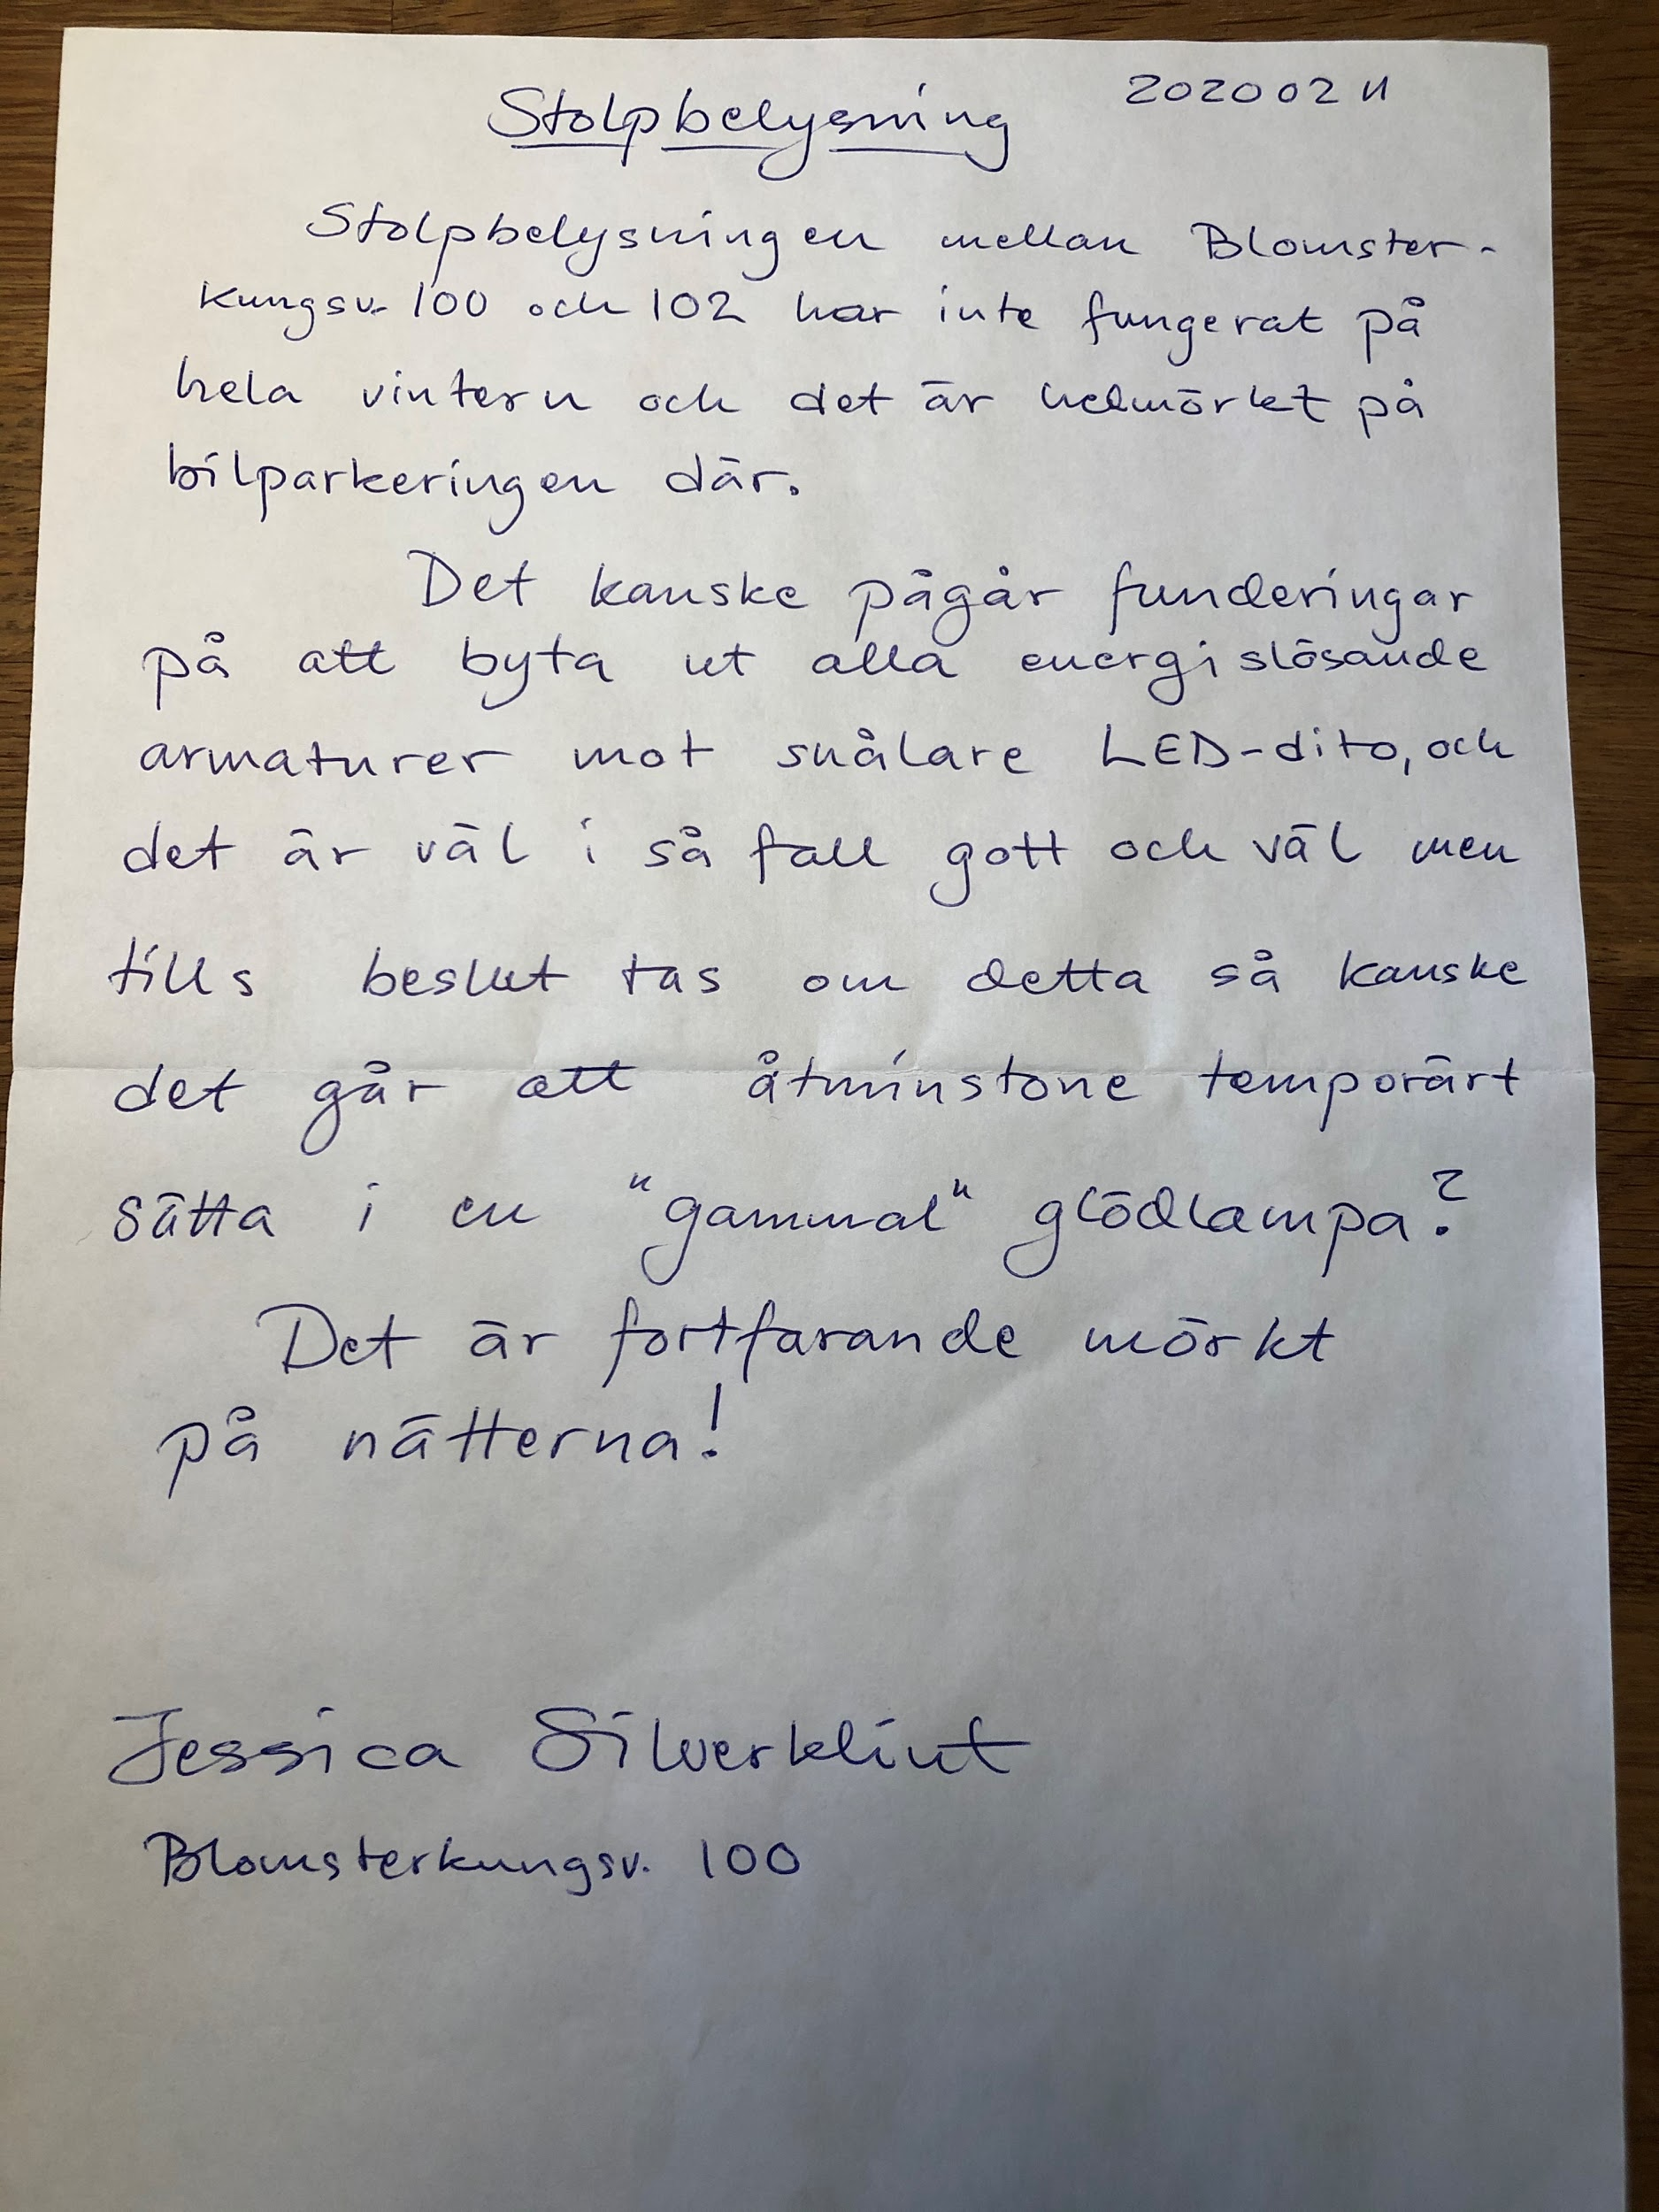 Stolpbelysning 20200211
Stolpbelysningen mellan Blomster-
kungsv. 100 och 102 har inte fungerat på
hela vintern och det är helmörkt på
bilparkeringen där.
Det kanske pågår funderingar
på att byta ut alla energislösande
armaturer mot snålare LED-dito, och
det är väl i så fall gott och väl men
tills beslut tas om detta så kanske
det går att åtminstone temporärt
sätta i en "gammal" glödlampa?
Det är fortfarande mörkt
på nätterna!
Jessica Silverklint
Blomsterkungsv. 100